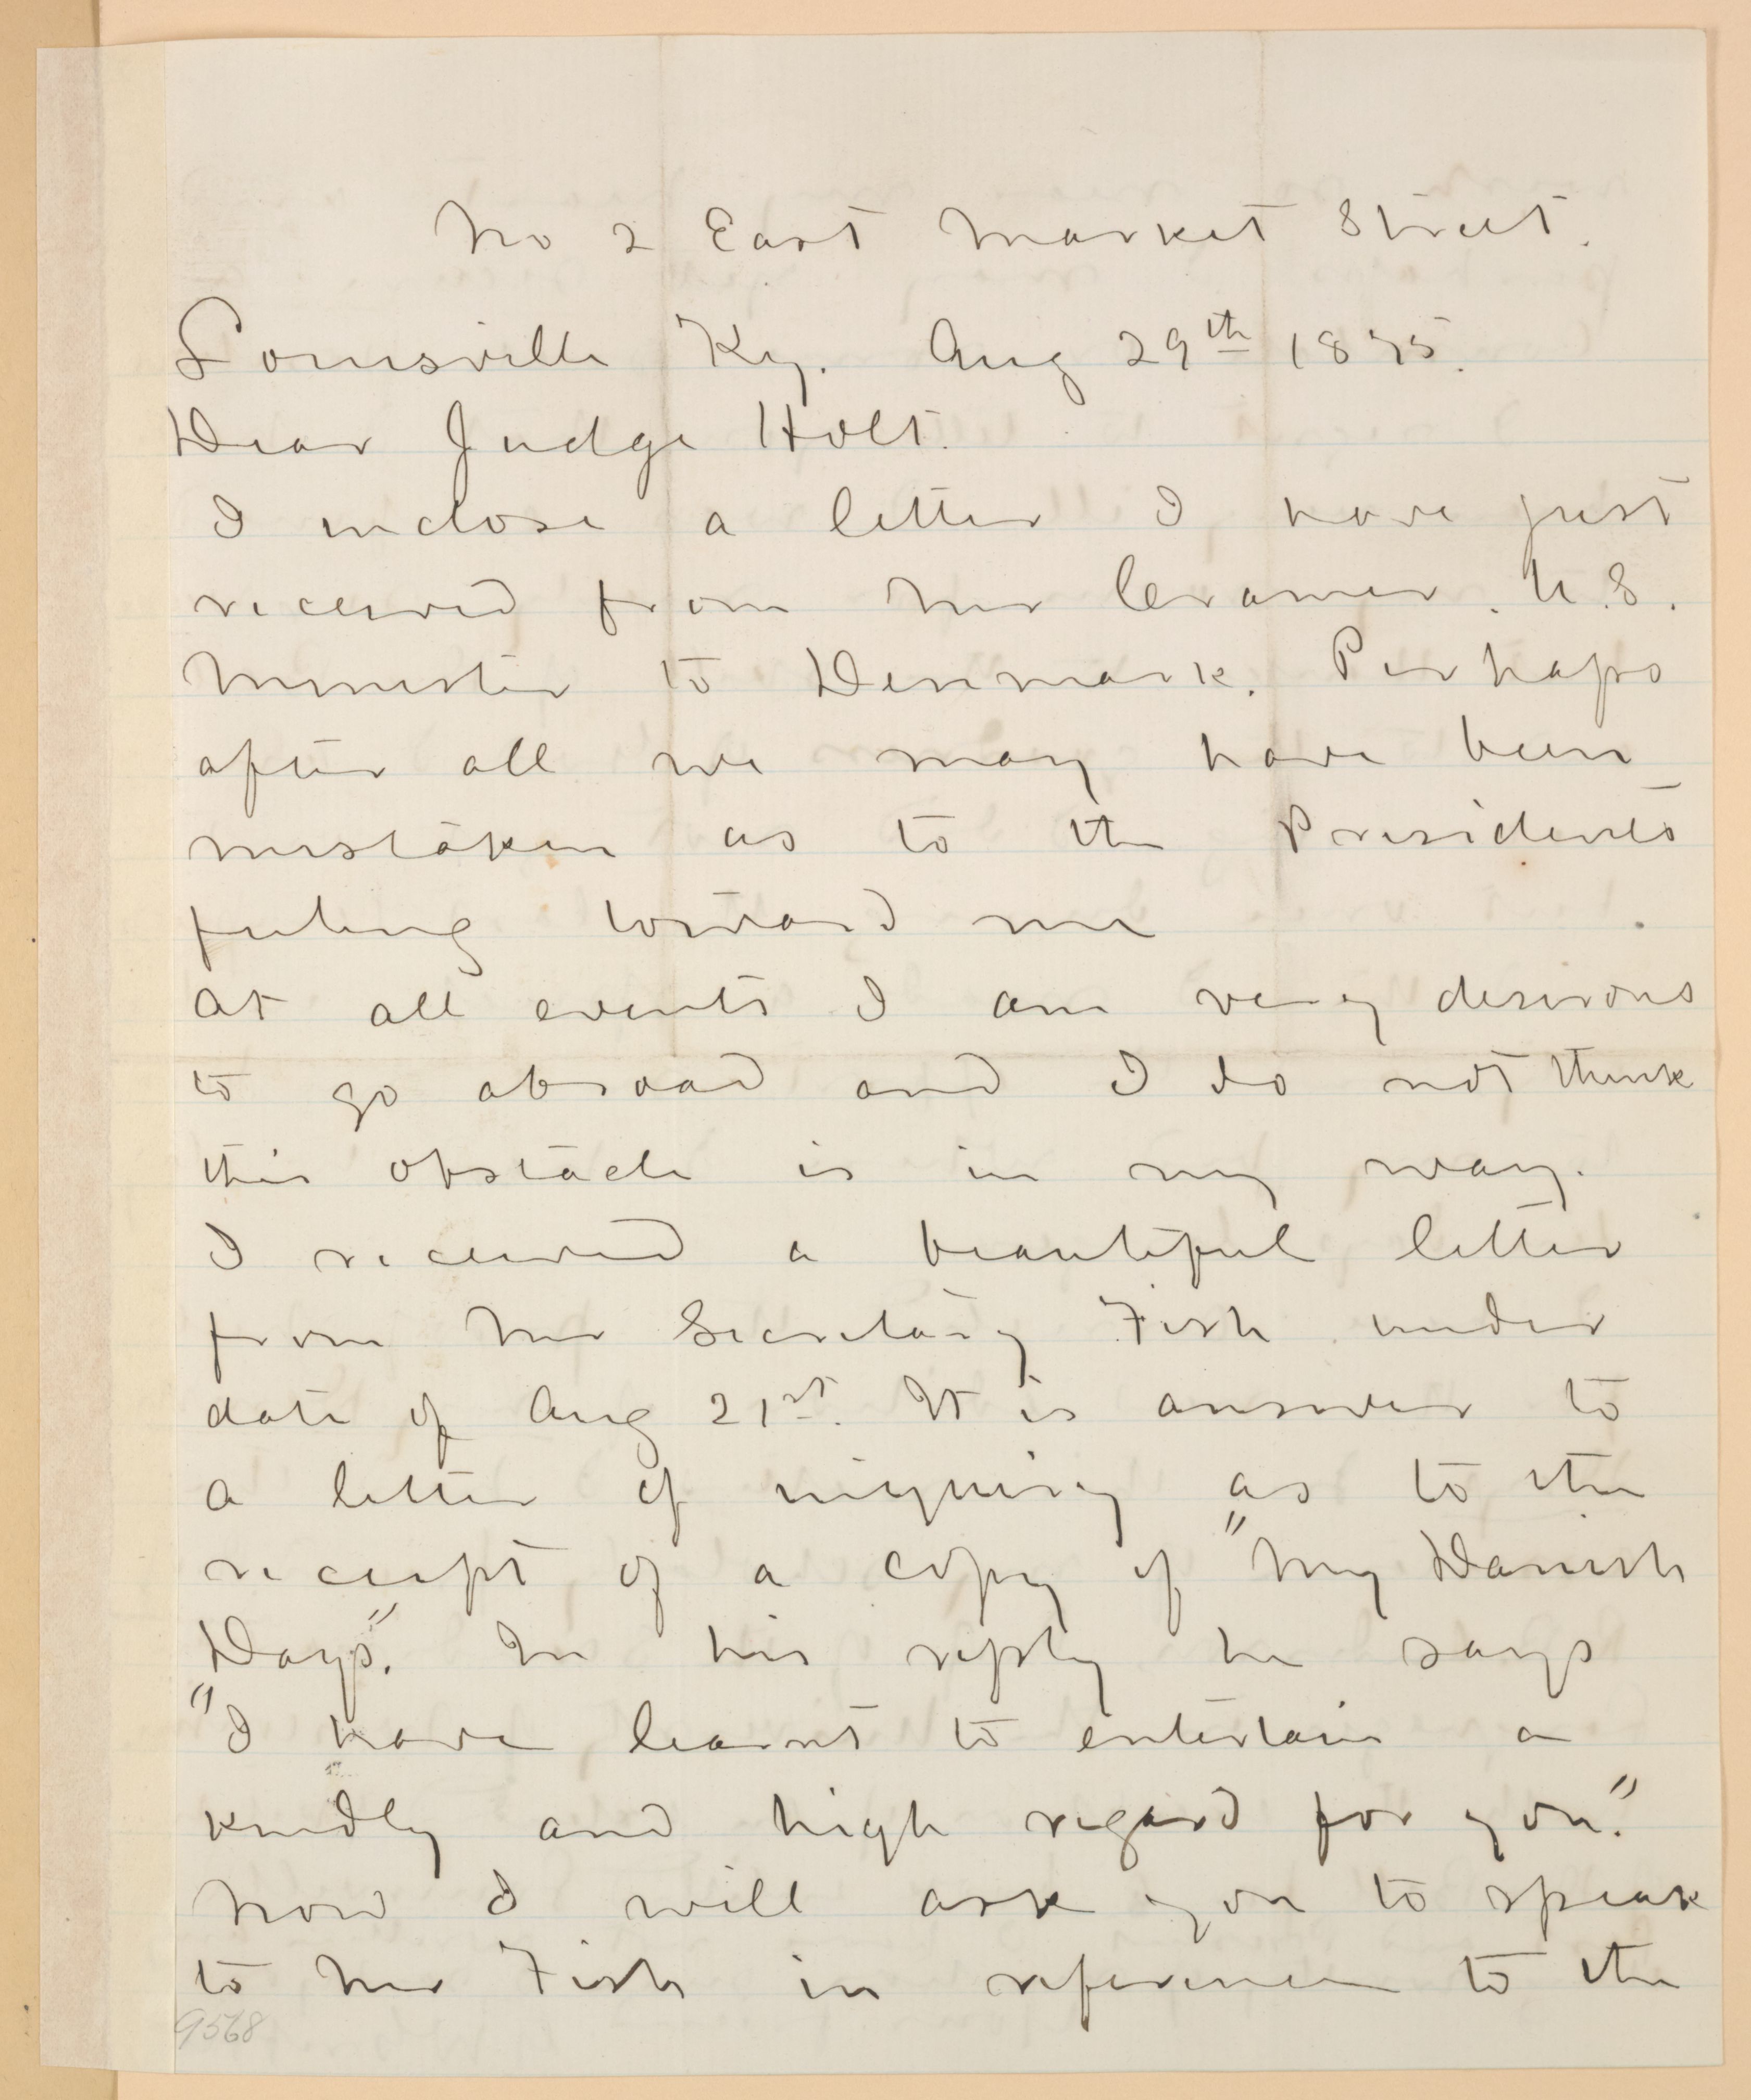 No 2 East Market Street.
Louisville Ky. Aug 29th 1875.
Dear Judge Holt.
I inclose a letter I have just
received from Mr Cramer. U.S.
Minister to Denmark. Perhaps
after all we may have been
mistaken as to the Presidents
feeling toward me
At all events I am very desirous
to go abroad and I do not think
this obstacle is in my way.
I received a beautiful letter
from Mr Secretary Fish under
date of Aug 21st. It is answer to
a letter of inquiry as to the
receipt of a copy of "My Danish
Days". In his reply he says
"I have learnt to entertain a
kindly and high regard for you."
Now I will ask you to speak
to Mr Fish in reference to the
9568